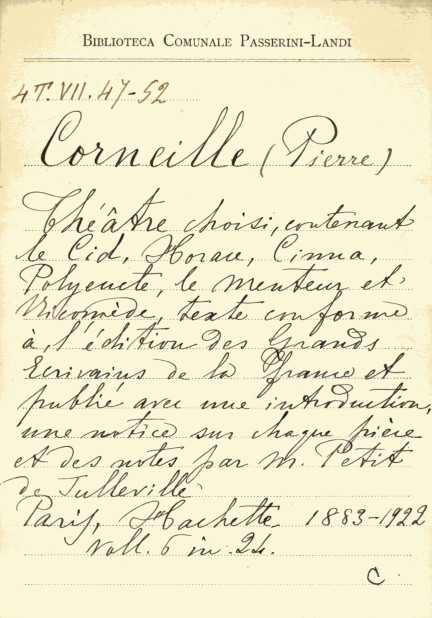 BIBLIOTECA COMUNALE PASSERINI-LANDI
4T.VII.47-52
Corneille (Pierre)
Théâtre choisi, contenant
le Cid, Horace, Cinna,
Polyeucte, le Menteur et
Nicomède, texte conforme
à l'édition des Grands
Ecrivains de la France et
publié avec une introduction,
une notice sur chaque pièce
et des notes par M. Petit
de Julleville
Paris, Hachette 1883-1922
Voll. 6 in. 24.
C